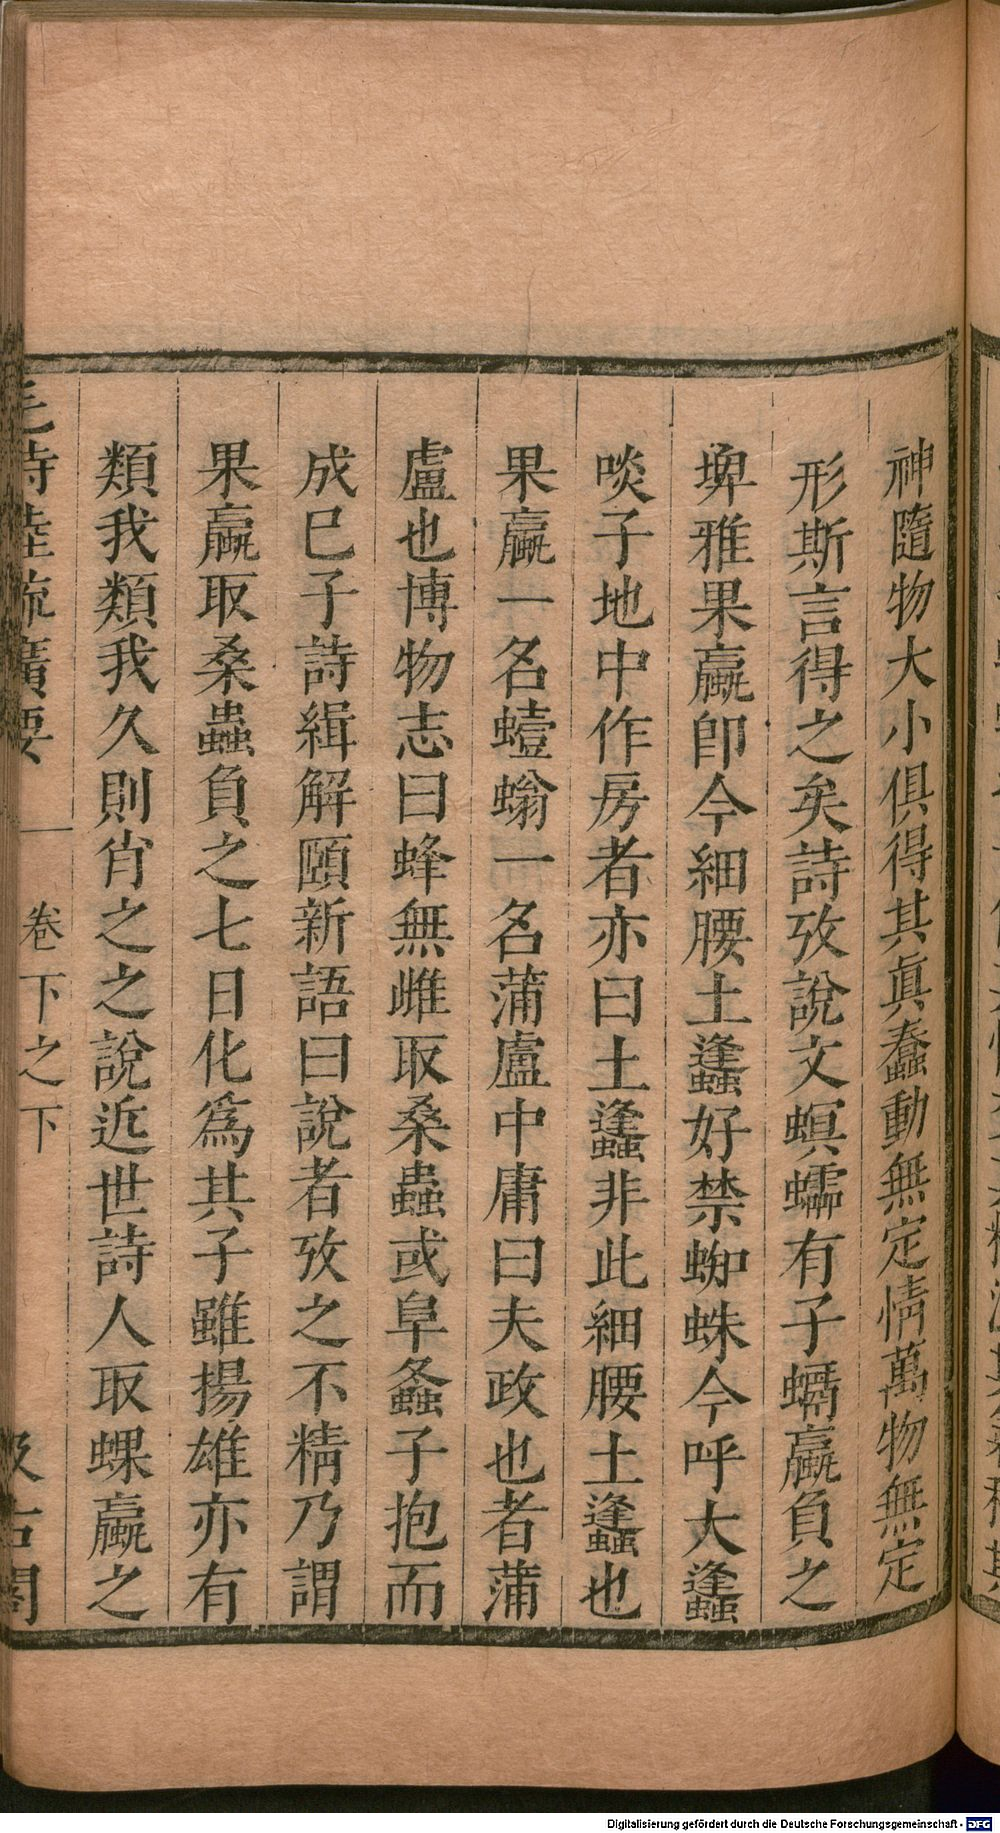 神隨物大小俱得其眞蠢動無定情萬物無定
形斯言得之矣詩攷說文螟蠕有子蠣蠃負之
埤雅果蠃卽今細腰土蠭好禁蜘蛛今呼大蠭
啖子地中作房者亦曰土蠭非此細腰土蠭也
果蠃一名蠮螉一名蒲盧中庸曰夫政也者蒲
盧也博物志曰蜂無雌取桑蟲或阜螽子抱而
成巳子詩緝解頤新語曰說者攷之不精乃謂
果蠃取桑蟲負之七日化爲其子雖揚雄亦有
類我類我久則肖之之說近世詩人取蜾蠃之
毛詩陸疏廣要 卷下之下 汲古閣
Digitalisierung gefördert durch die Deutsche Forschungsgemeinschaft - DFG